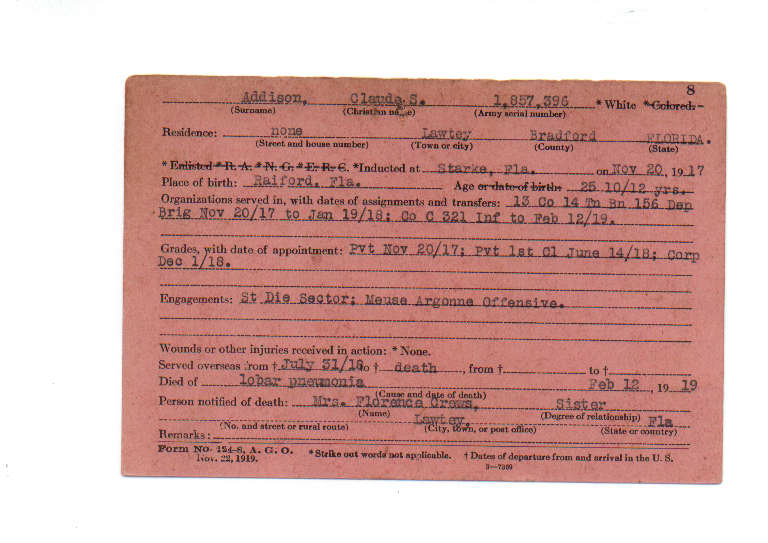 8
Addison, Claude S. 1,857,396 * White * Colored.
(Surname) (Christian name) (Army serial number)
Residence: none Lawtey Bradford FLORIDA.
(Street and house number) (Town or city) (County) (State)
* Enlisted * R. A. * N. G. * E. R. C. * Inducted at Starke, Fla. on Nov 20, 1917
Place of birth: Raiford, Fla. Age or date of birth: 25 10/12 yrs.
Organizations served in, with dates of assignments and transfers: 13 Co 14 Tn Bn 156 Dep
Brig Nov 20/17 to Jan 19/18; Co C 321 Inf to Feb 12/19.
Grades, with date of appointment: Pvt Nov 20/17; Pvt 1st Cl June 14/18; Corp
Dec 1/18.
Engagements: St Die Sector; Meuse Argonne Offensive.
Wounds or other injuries received in action: * None.
Served overseas from † July 31/18 to † death, from † to †
Died of lobar pneumonia Feb 12, 1919
(Cause and date of death)
Person notified of death: Mrs. Florence Crews, Sister
(Name) (Degree of relationship)
Lawtey, Fla
(No. and street or rural route) (City, town, or post office) (State or country)
Remarks:
Form No. 724-8, A. G. O. * Strike out words not applicable. † Dates of departure from and arrival in the U. S.
Nov. 22, 1919. 3—7389